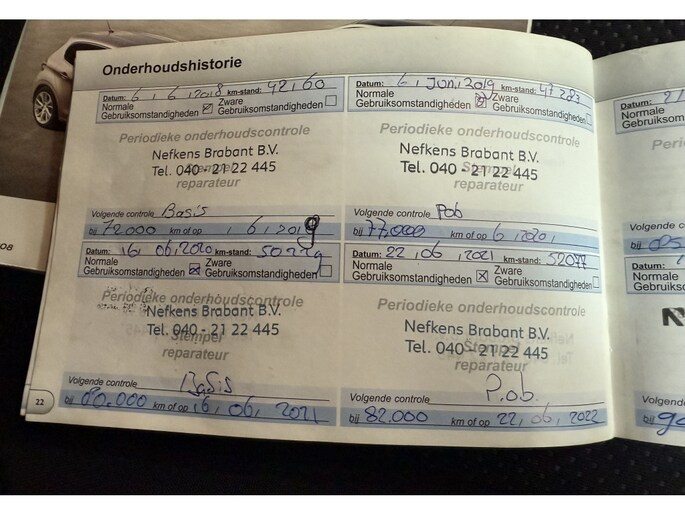 Onderhoudshistorie
Datum: 6, 6, 2018 km-stand:
Normale Gebruiksomstandigheden ☒ Zware Gebruiksomstandigheden ☐
Periodieke onderhoudscontrole
Nefkens Brabant B.V.
Stempel
Tel. 040 - 21 22 445
reparateur
Volgende controle Basis
bij 72.000 km of op 1, 6, 2019
Datum: 6, Jun, 2019 km-stand: 47283
Normale Gebruiksomstandigheden ☒ Zware Gebruiksomstandigheden ☐
Periodieke onderhoudscontrole
Nefkens Brabant B.V.
Stempel
Tel. 040 - 21 22 445
reparateur
Volgende controle Pob
bij 77.000 km of op 6, 2020,
Datum: 16, 06, 2020 km-stand:
Normale Gebruiksomstandigheden ☒ Zware Gebruiksomstandigheden ☐
Periodieke onderhoudscontrole
Nefkens Brabant B.V.
Tel. 040 - 21 22 445
Stempel
reparateur
Volgende controle Basis
bij km of op 16, 06, 2021
Datum: 22, 06, 2021 km-stand: 52077
Normale Gebruiksomstandigheden ☒ Zware Gebruiksomstandigheden ☐
Periodieke onderhoudscontrole
Nefkens Brabant B.V.
Stempel
Tel. 040 - 21 22 445
reparateur
Volgende controle P.ob.
bij 82.000 km of op 22, 06, 2022
22
08
Datum:
Normale
Volgende
bij
Datum:
Normale
Volgende
bij